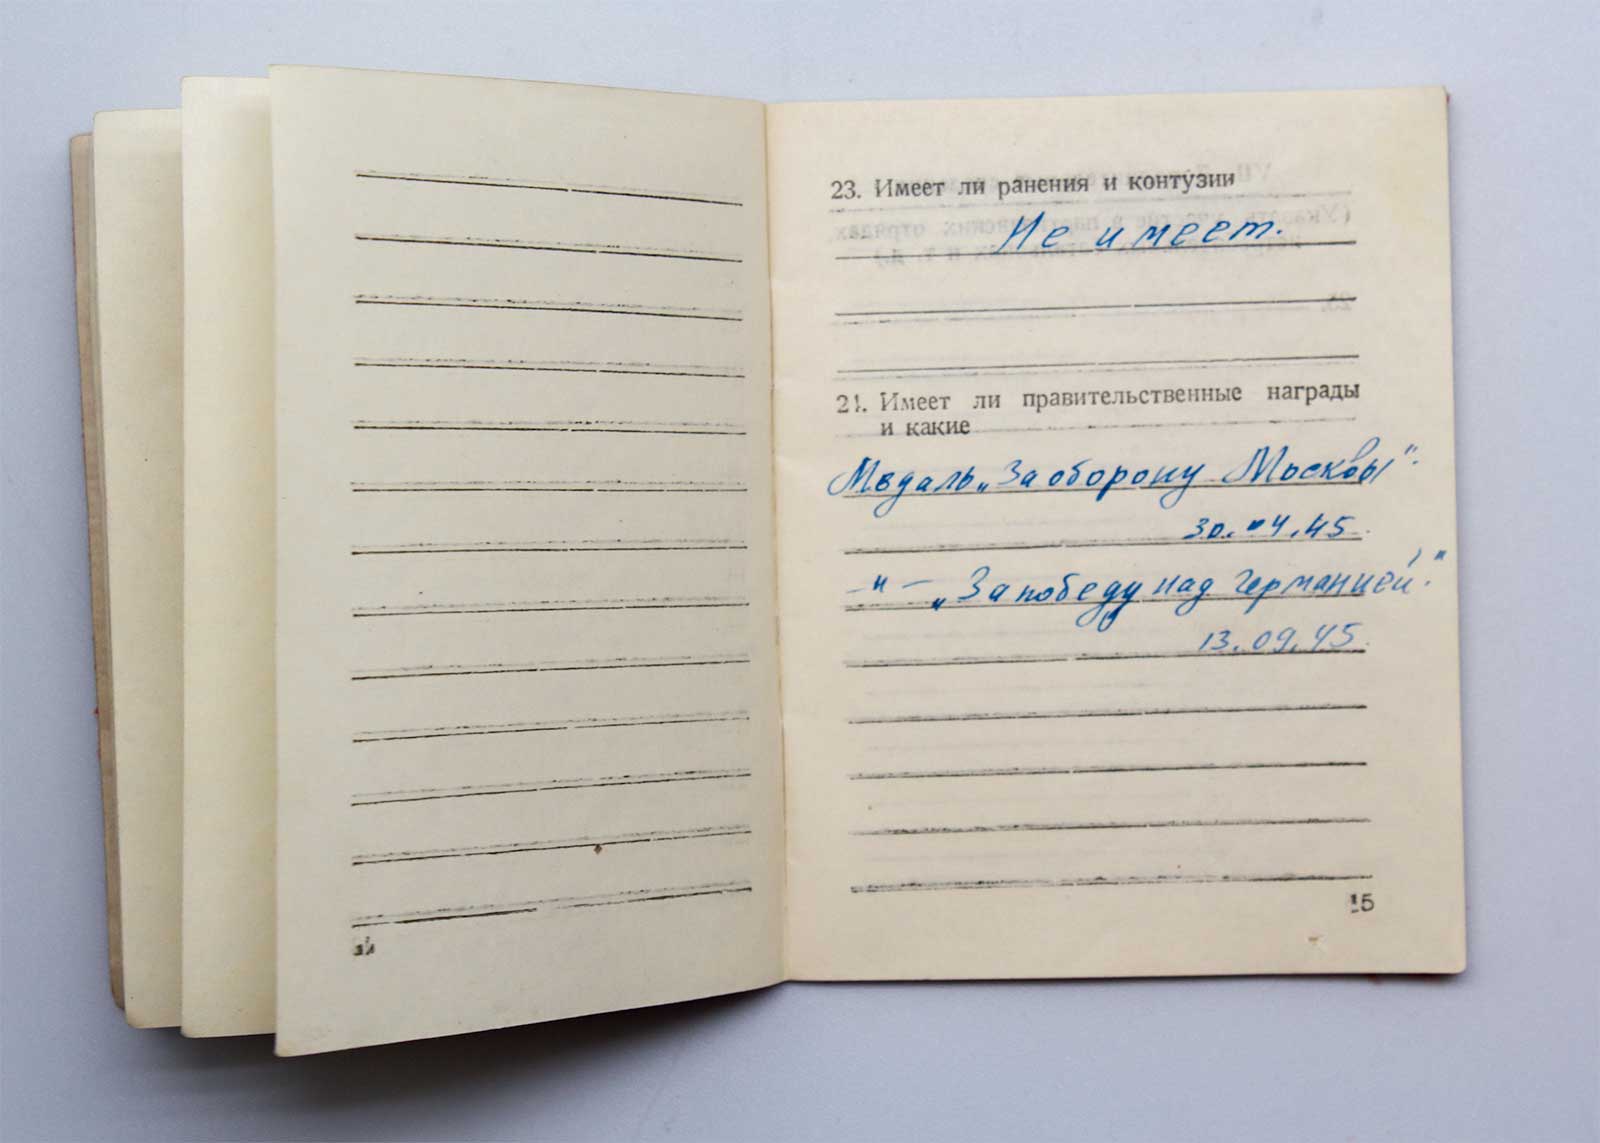 23. Имеет ли ранения и контузии
Не имеет.
24. Имеет ли правительственные награды
и какие
Медаль „За оборону Москвы".
30.04.45
–„– „За победу над Германией."
13.09.45
15